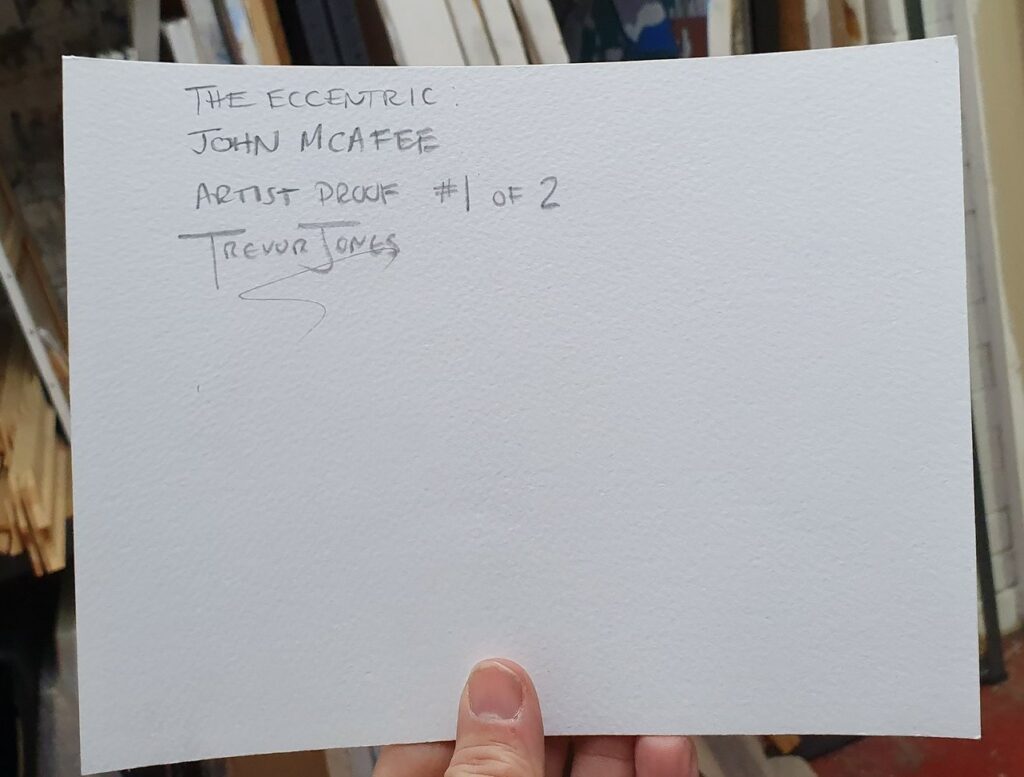 THE ECCENTRIC:
JOHN MCAFEE
ARTIST PROOF #1 OF 2
TREVOR JONES